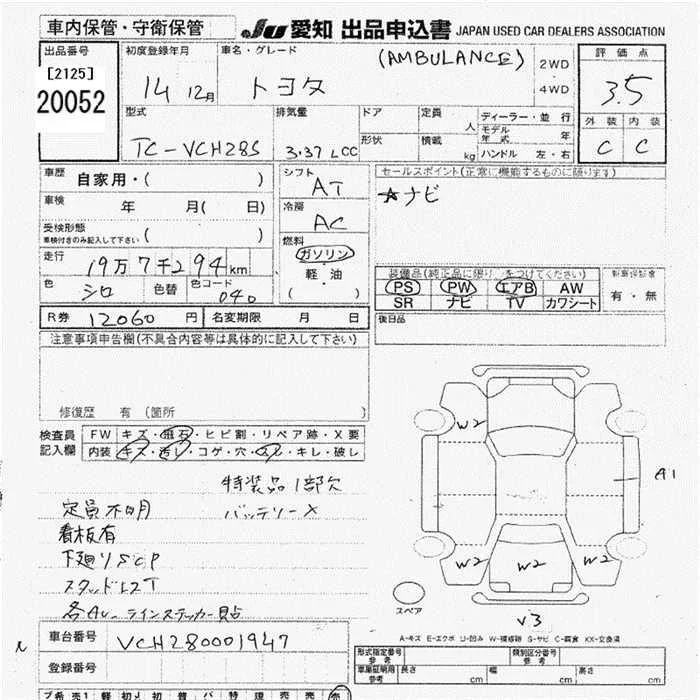 車内保管・守衛保管
JU 愛知 出品申込書 JAPAN USED CAR DEALERS ASSOCIATION
出品番号
[2125]
20052
初度登録年月
14 12月
車名・グレード
トヨタ (AMBULANCE)
2WD
・
4WD
評価点
3.5
外装 内装
C C
型式
TC-VCH28S
排気量
3.37 L CC
ドア
形状
定員 人
積載 kg
ディーラー・並 行
モデル年式 年
ハンドル 左・右
車歴 自家用・( )
車検 年 月( 日)
受検形態
車検付きのみ記入して下さい ( )
走行 19万7千294km
色 シロ 色替 色コード 040
シフト
AT
冷房
AC
燃料
ガソリン
・
軽・油
( )
セールスポイント(正常に機能するものに限ります)
☆ナビ
装備品(純正品に限り○をつけてください)
PS PW エアB AW
SR ナビ TV カワシート
新車保証書
有・無
後日品
R券 12060 円 名変期限 月 日
注意事項申告欄(不具合内容等は具体的に記入して下さい)
修復歴 有 (箇所 )
検査員 FW キズ・飛石・ヒビ割・リペア跡・X要
記入欄 内装 キズ・汚レ・コゲ・穴・スレ・キレ・破レ
特装品1部欠
定員不明 バッテリーX
看板有
下廻りSCP
スタッドレスT
各AU-ラインステッカー貼
W2
A1
W2 W2 W2
スペア
V3
A-キズ E-エクボ U-凹み W-補修跡 S-サビ C-腐食 XX-交換済
車台番号 VCH280001947
登録番号
形式指定番号 参考 類別区分番号 参考
車庫証明用 参考 長さ cm 幅 cm 高さ cm